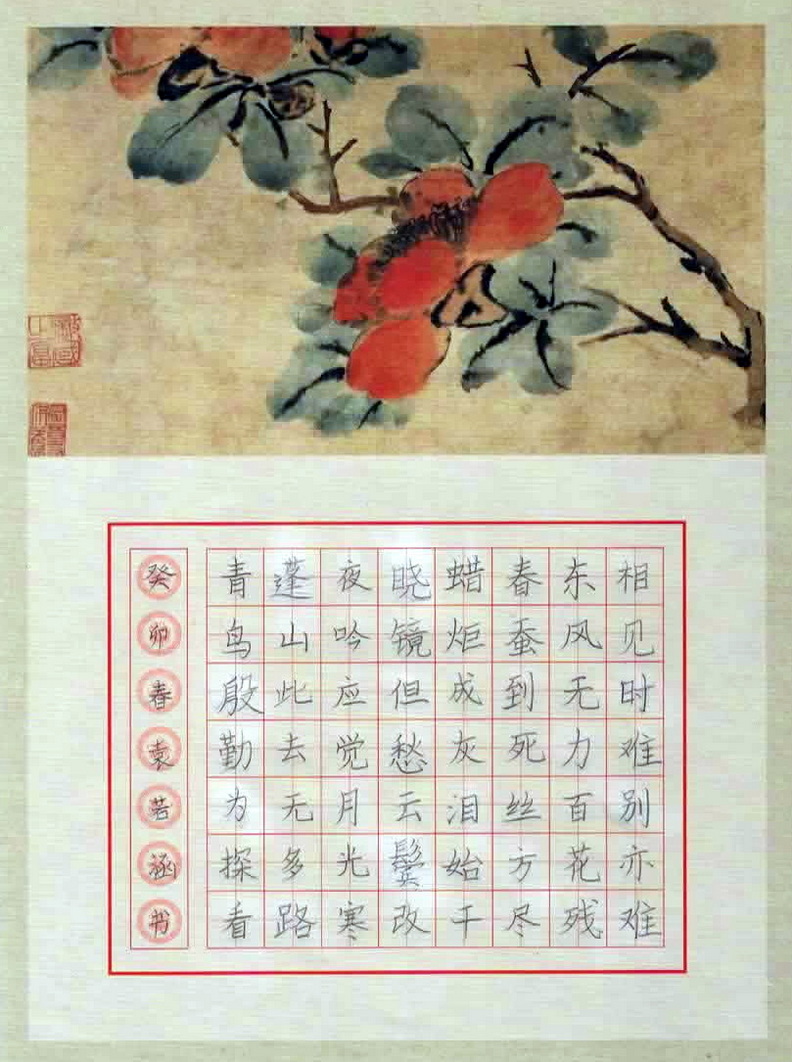 相见时难别亦难
东风无力百花残
春蚕到死丝方尽
蜡炬成灰泪始干
晓镜但愁云鬓改
夜吟应觉月光寒
蓬山此去无多路
青鸟殷勤为探看
癸卯春袁若涵书